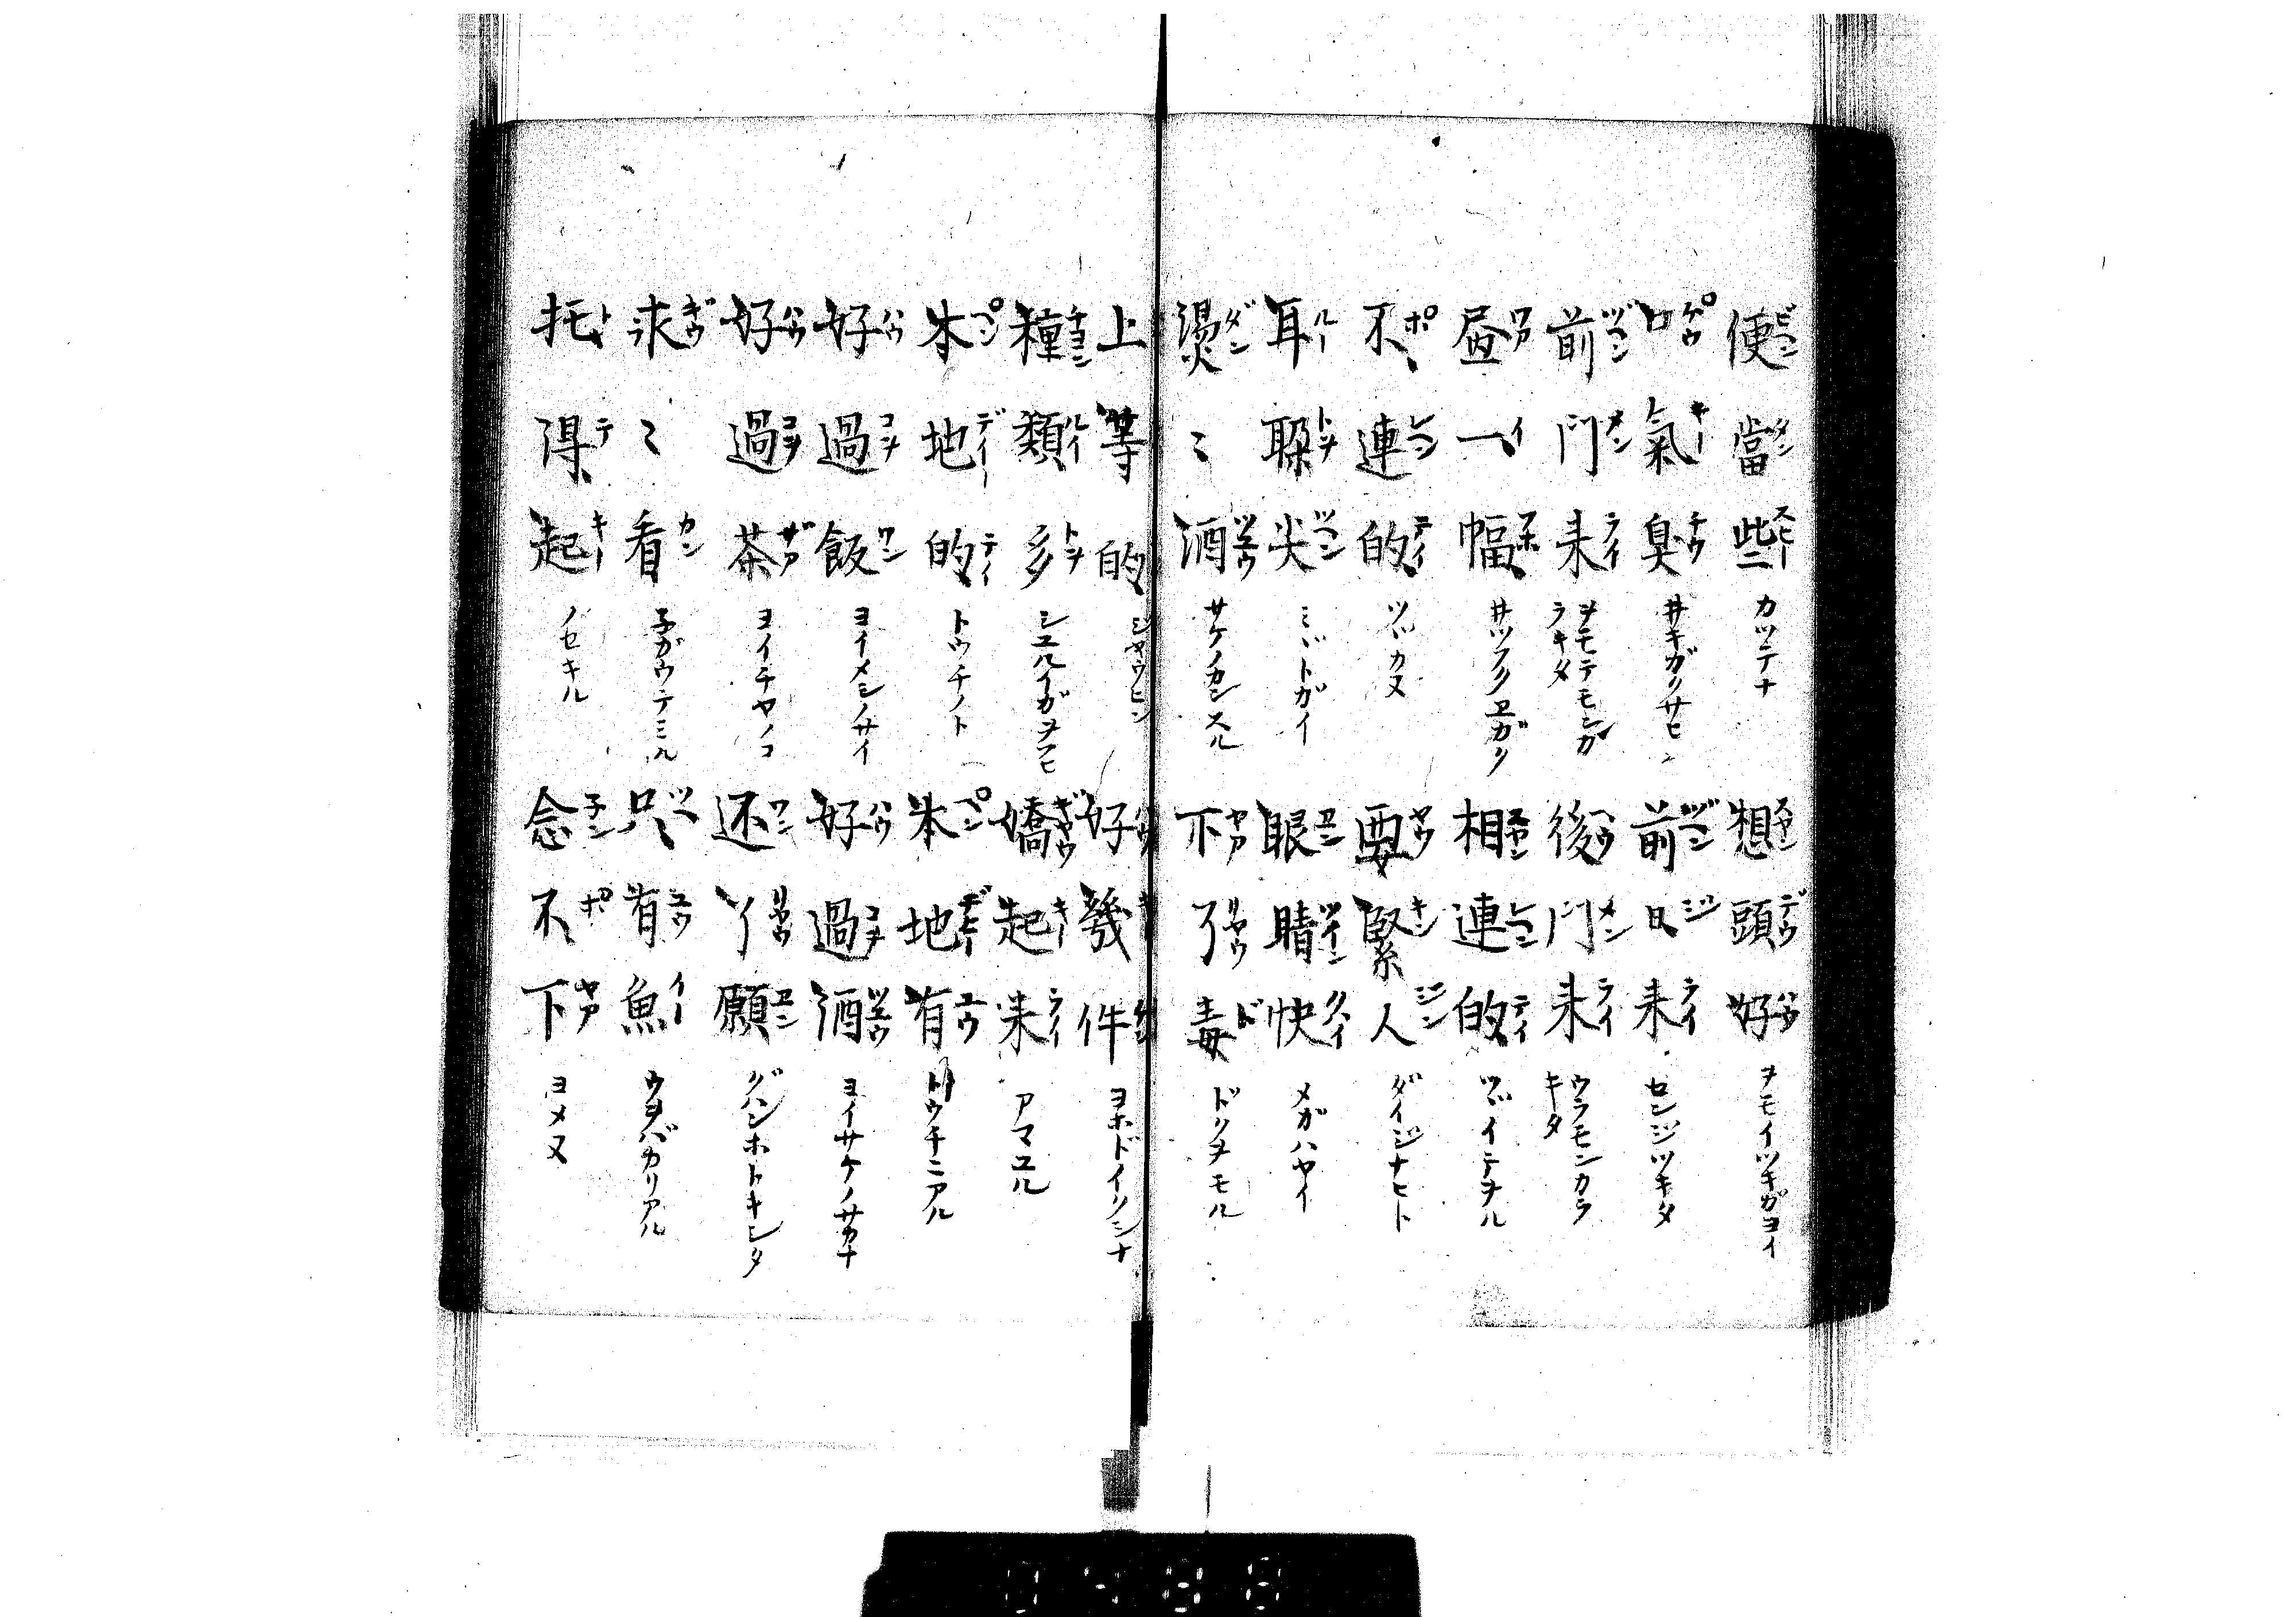 便當些 カッテナ 想頭好 ヲモイツキガヨイ
口氣臭 井キガクサヒ 前日來 センジツキタ
前門來 ヲモテモンカラキタ 後門來 ウラモンカラキタ
畫一幅 井ツフクノヱガク 相連的 ツヾイテヲル
不連的 ツヾカヌ 要緊人 ダイジナヒト
耳聡尖 ミヽトガイ 眼睛快 メガハヤイ
燙〻酒 サケノカンスル 下了毒 ドクヲモル
上等的 ジヤウヒン 好幾件 ヨホドイクシナ
種類多 シユルイガヲフヒ 嬌起來 アマユル
本地的 トウチノト 本地有 トウチニアル
好過飯 ヨイメシノサイ 好過酒 ヨイサケノサカナ
好過茶 ヨイチヤノコ 还了願 グハンホトキシタ
求〻看 子ガウテミル 只有魚 ウヲバカリアル
托得起 ノセキル 念不下 ヨメヌ